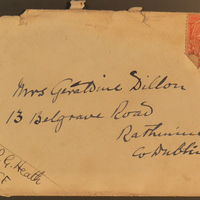 Mrs Géraldine Dillon
13 Belgrave Road
Rathmin
Co Dublin
G. Heath